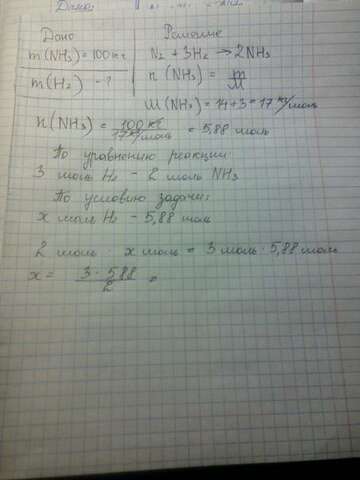 Дано
Решение
m(NH₃)=100кг
N₂ + 3H₂ → 2NH₃
m(H₂) - ?
n(NH₃) = m/M
M(NH₃) = 14+3=17 кг/моль
n(NH₃) = 100 кг / 17 кг/моль = 5,88 моль
По уравнению реакции
3 моль H₂ - 2 моль NH₃
По условию задачи:
x моль H₂ - 5,88 моль
2 моль · x моль = 3 моль · 5,88 моль
x = 3 · 5 88 / 2 =